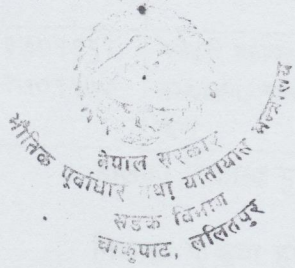 नेपाल सरकार
भौतिक पूर्वाधार तथा यातायात मन्त्रालय
सडक विभाग
चाकुपाट, ललितपुर